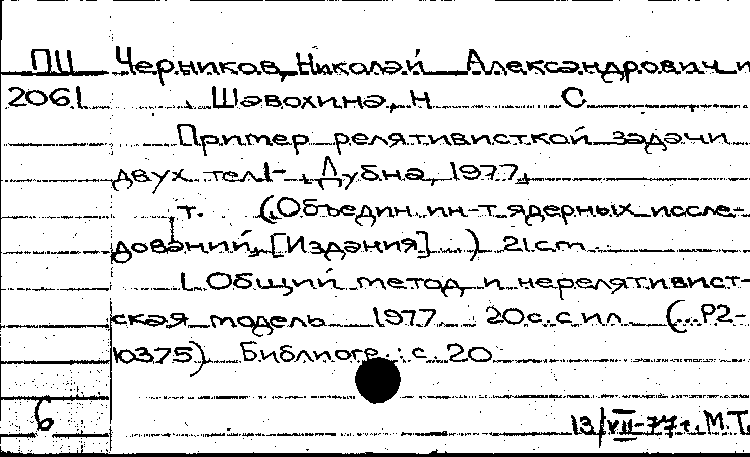 ПЦ Черников, Николай Александрович и
2061 Шавохина, Н С
Пример релятивисткой задачи
двух тел 1- , Дубна, 1977,
т. (Объедин ин-т ядерных иссле-
дований, [Издания] ) 21 cm
1. Общий метод и нерелятивист-
ская модель 1977 20 с. с ил (...Р2-
10375) Библиогр.: с. 20
6 13/VII-77 г. М.Т.